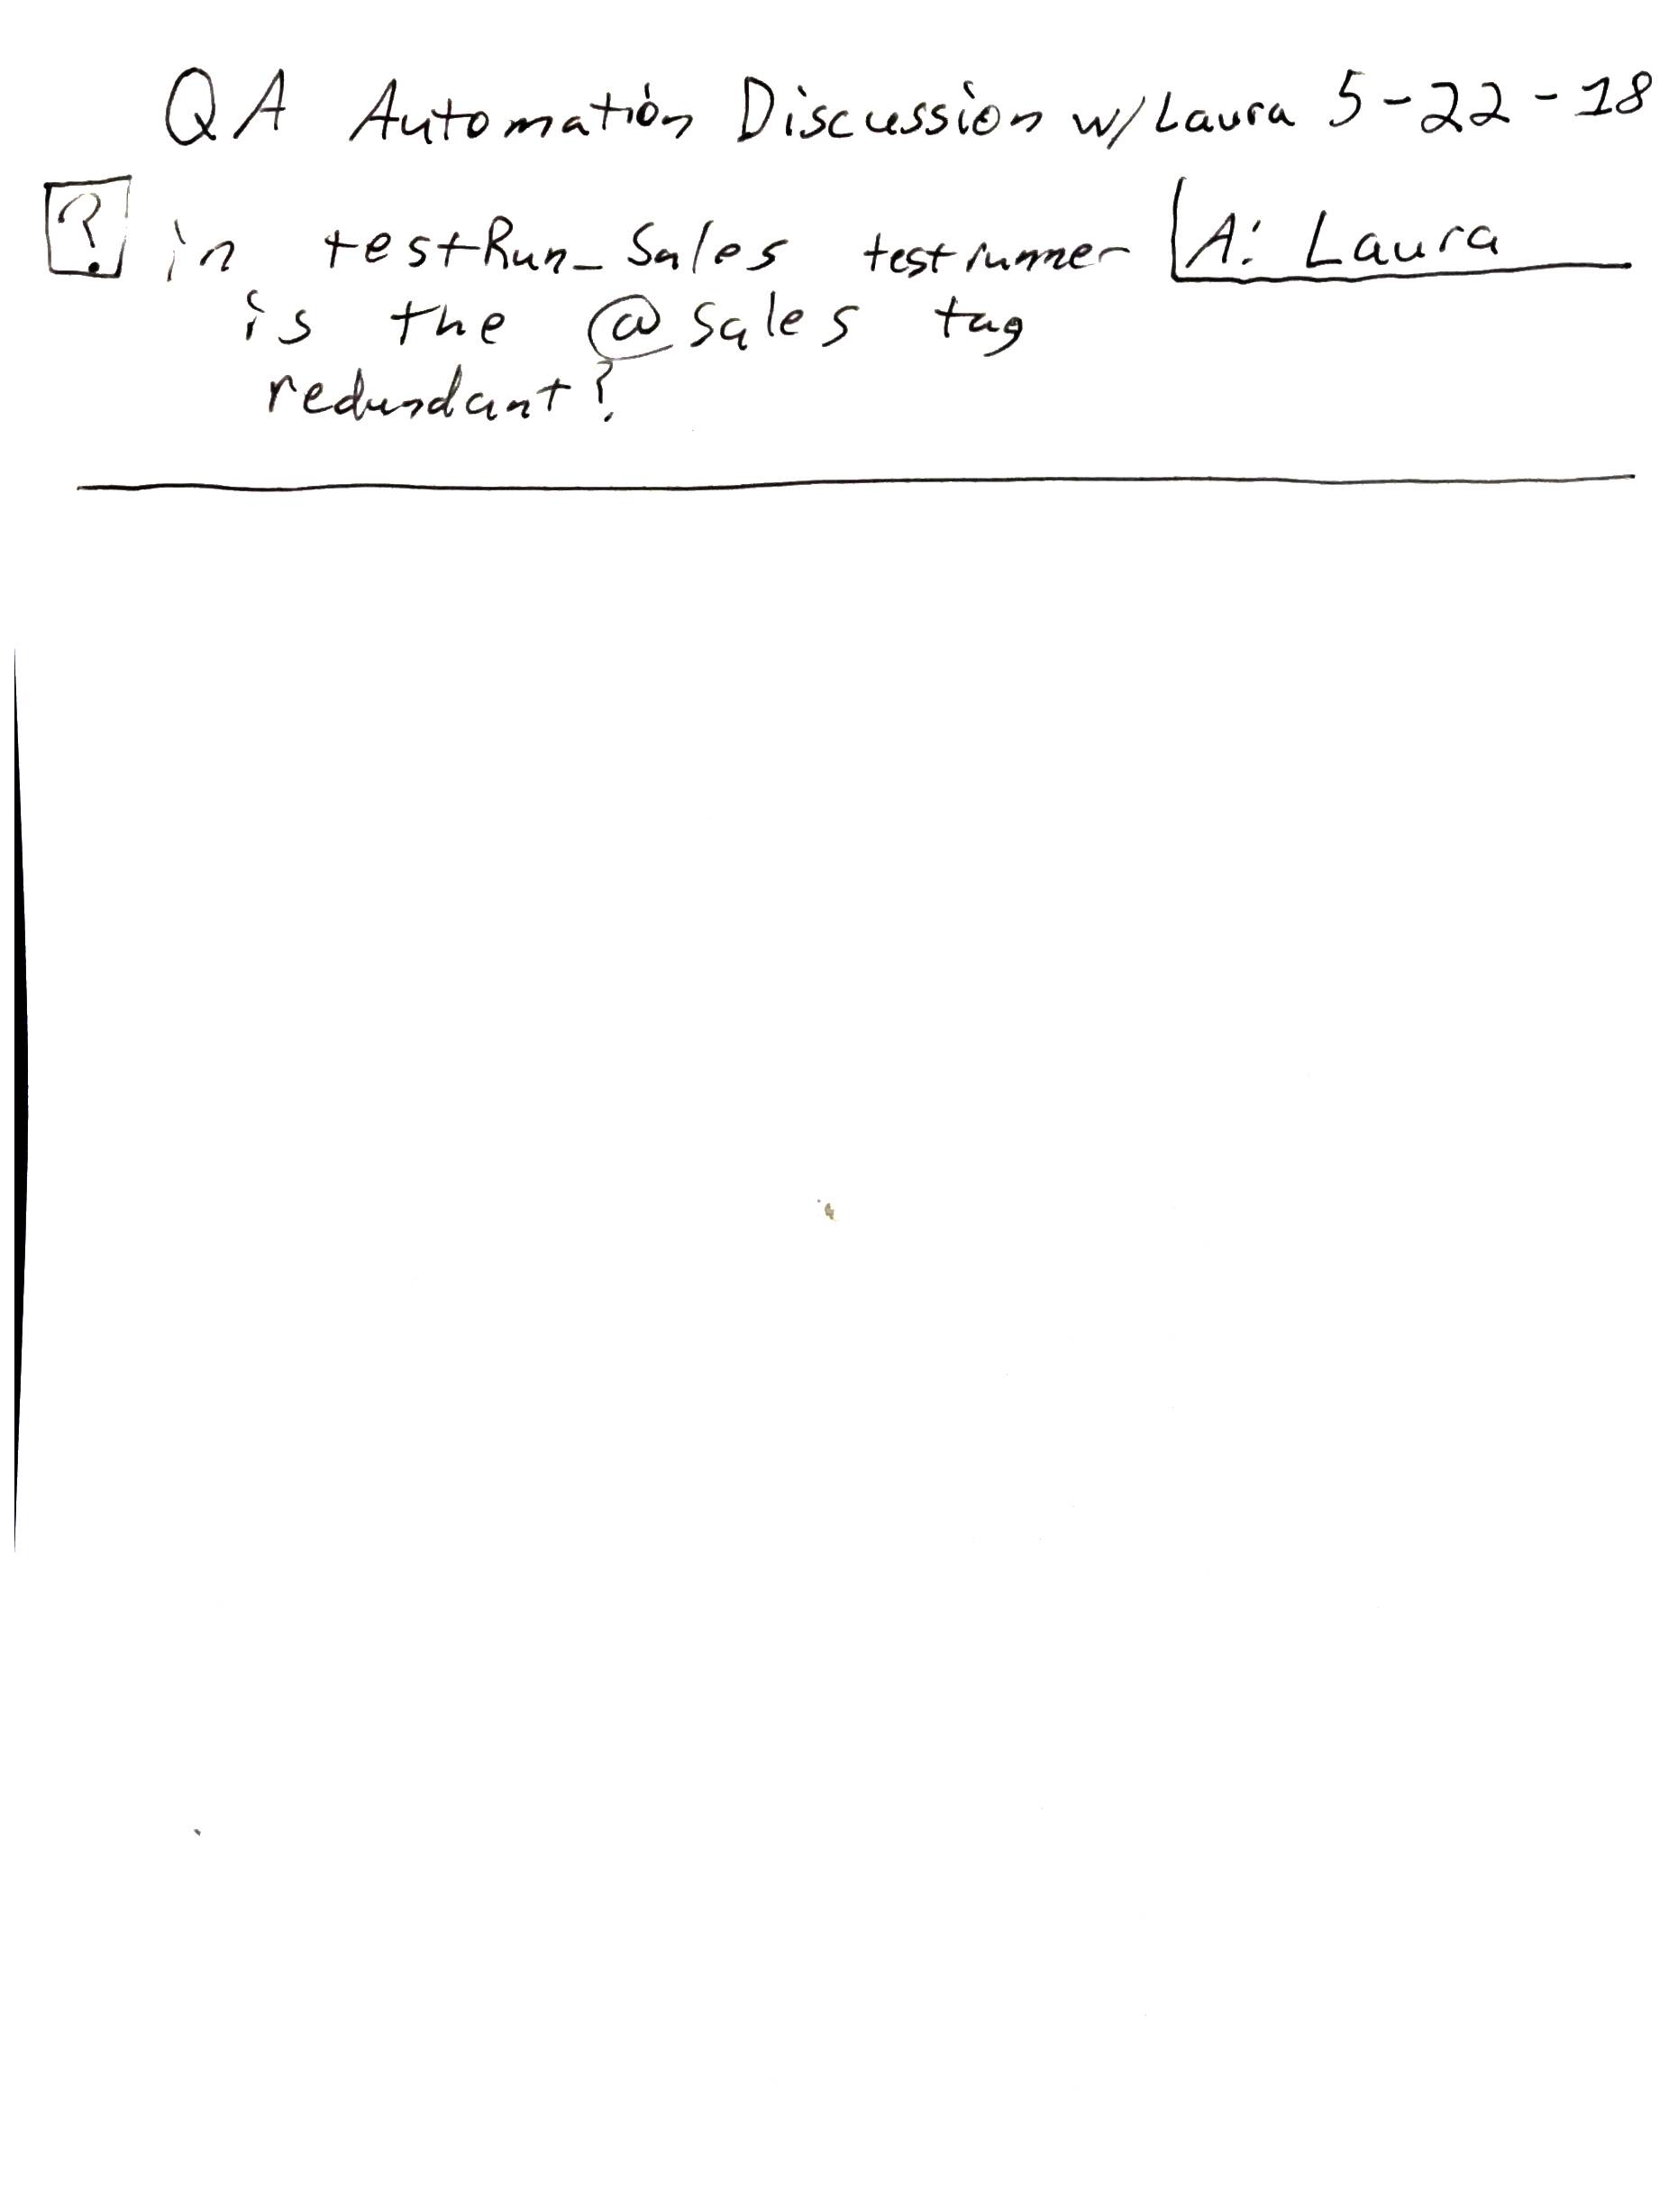 QA Automation Discussion w/ Laura 5-22-18
? in testRun_Sales testrunner A: Laura
is the @sales tag
redundant?